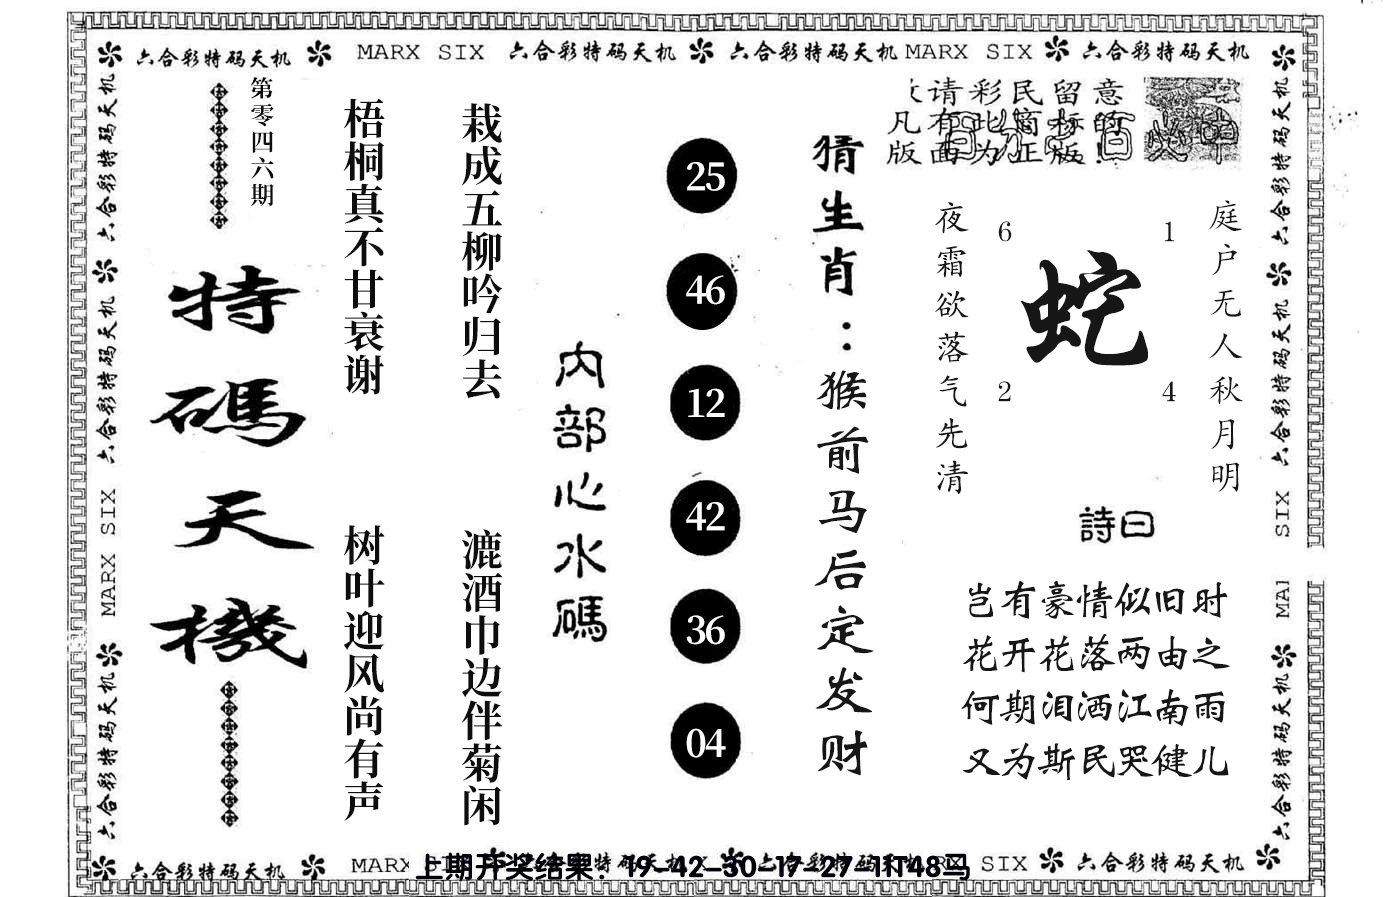 六合彩特码天机 MARX SIX 六合彩特码天机 六合彩特码天机 MARX SIX 六合彩特码天机
六合彩特码天机 六合彩特码天机 MARX SIX 六合彩特码天机
第零四六期
特碼天機
梧桐真不甘衰谢
树叶迎风尚有声
栽成五柳吟归去
漉酒巾边伴菊闲
内部心水碼
25
46
12
42
36
04
猜生肖：猴前马后定发财
请彩民留意
凡有此商标的
版面为正版!
庭户无人秋月明
夜霜欲落气先清
6 1
蛇
2 4
詩曰
岂有豪情似旧时
花开花落两由之
何期泪洒江南雨
又为斯民哭健儿
六合彩特码天机 六合彩特码天机 SIX 六合彩特码天机
六合彩特码天机 MARX SIX 六合彩特码天机
上期开奖结果：19-42-30-17-27-11T48马